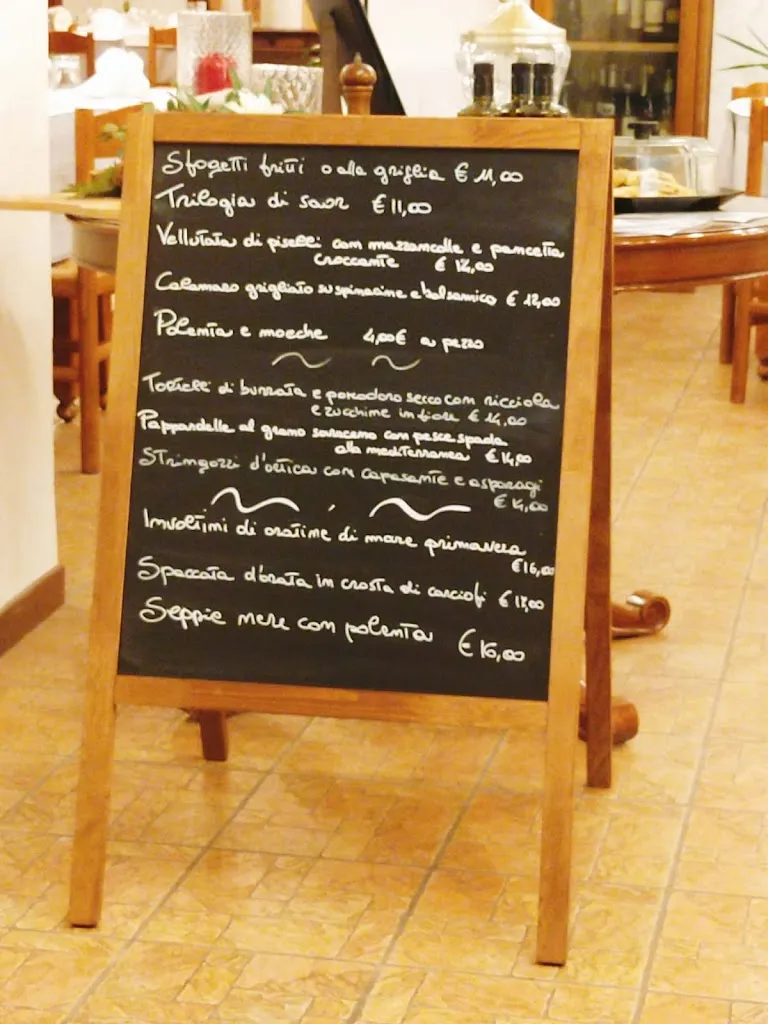 Sfogetti fritti o alla griglia € 11,00
Trilogia di saor € 11,00
Vellutata di piselli con mazzancolle e pancetta
croccante € 12,00
Calamaro grigliato su spinacine e balsamico € 12,00
Polenta e moeche 4,00€ a pezzo
Tortelli di burrata e pomodoro secco con ricciola
e zucchine in fiore € 14,00
Pappardelle al grano saraceno con pesce spada
alla mediterranea € 14,00
Stringozzi d'ortica con capesante e asparagi
€ 14,00
Involtini di oratine di mare primavera
€16,00
Spaccata d'orata in crosta di carciofi € 17,00
Seppie nere con polenta € 16,00